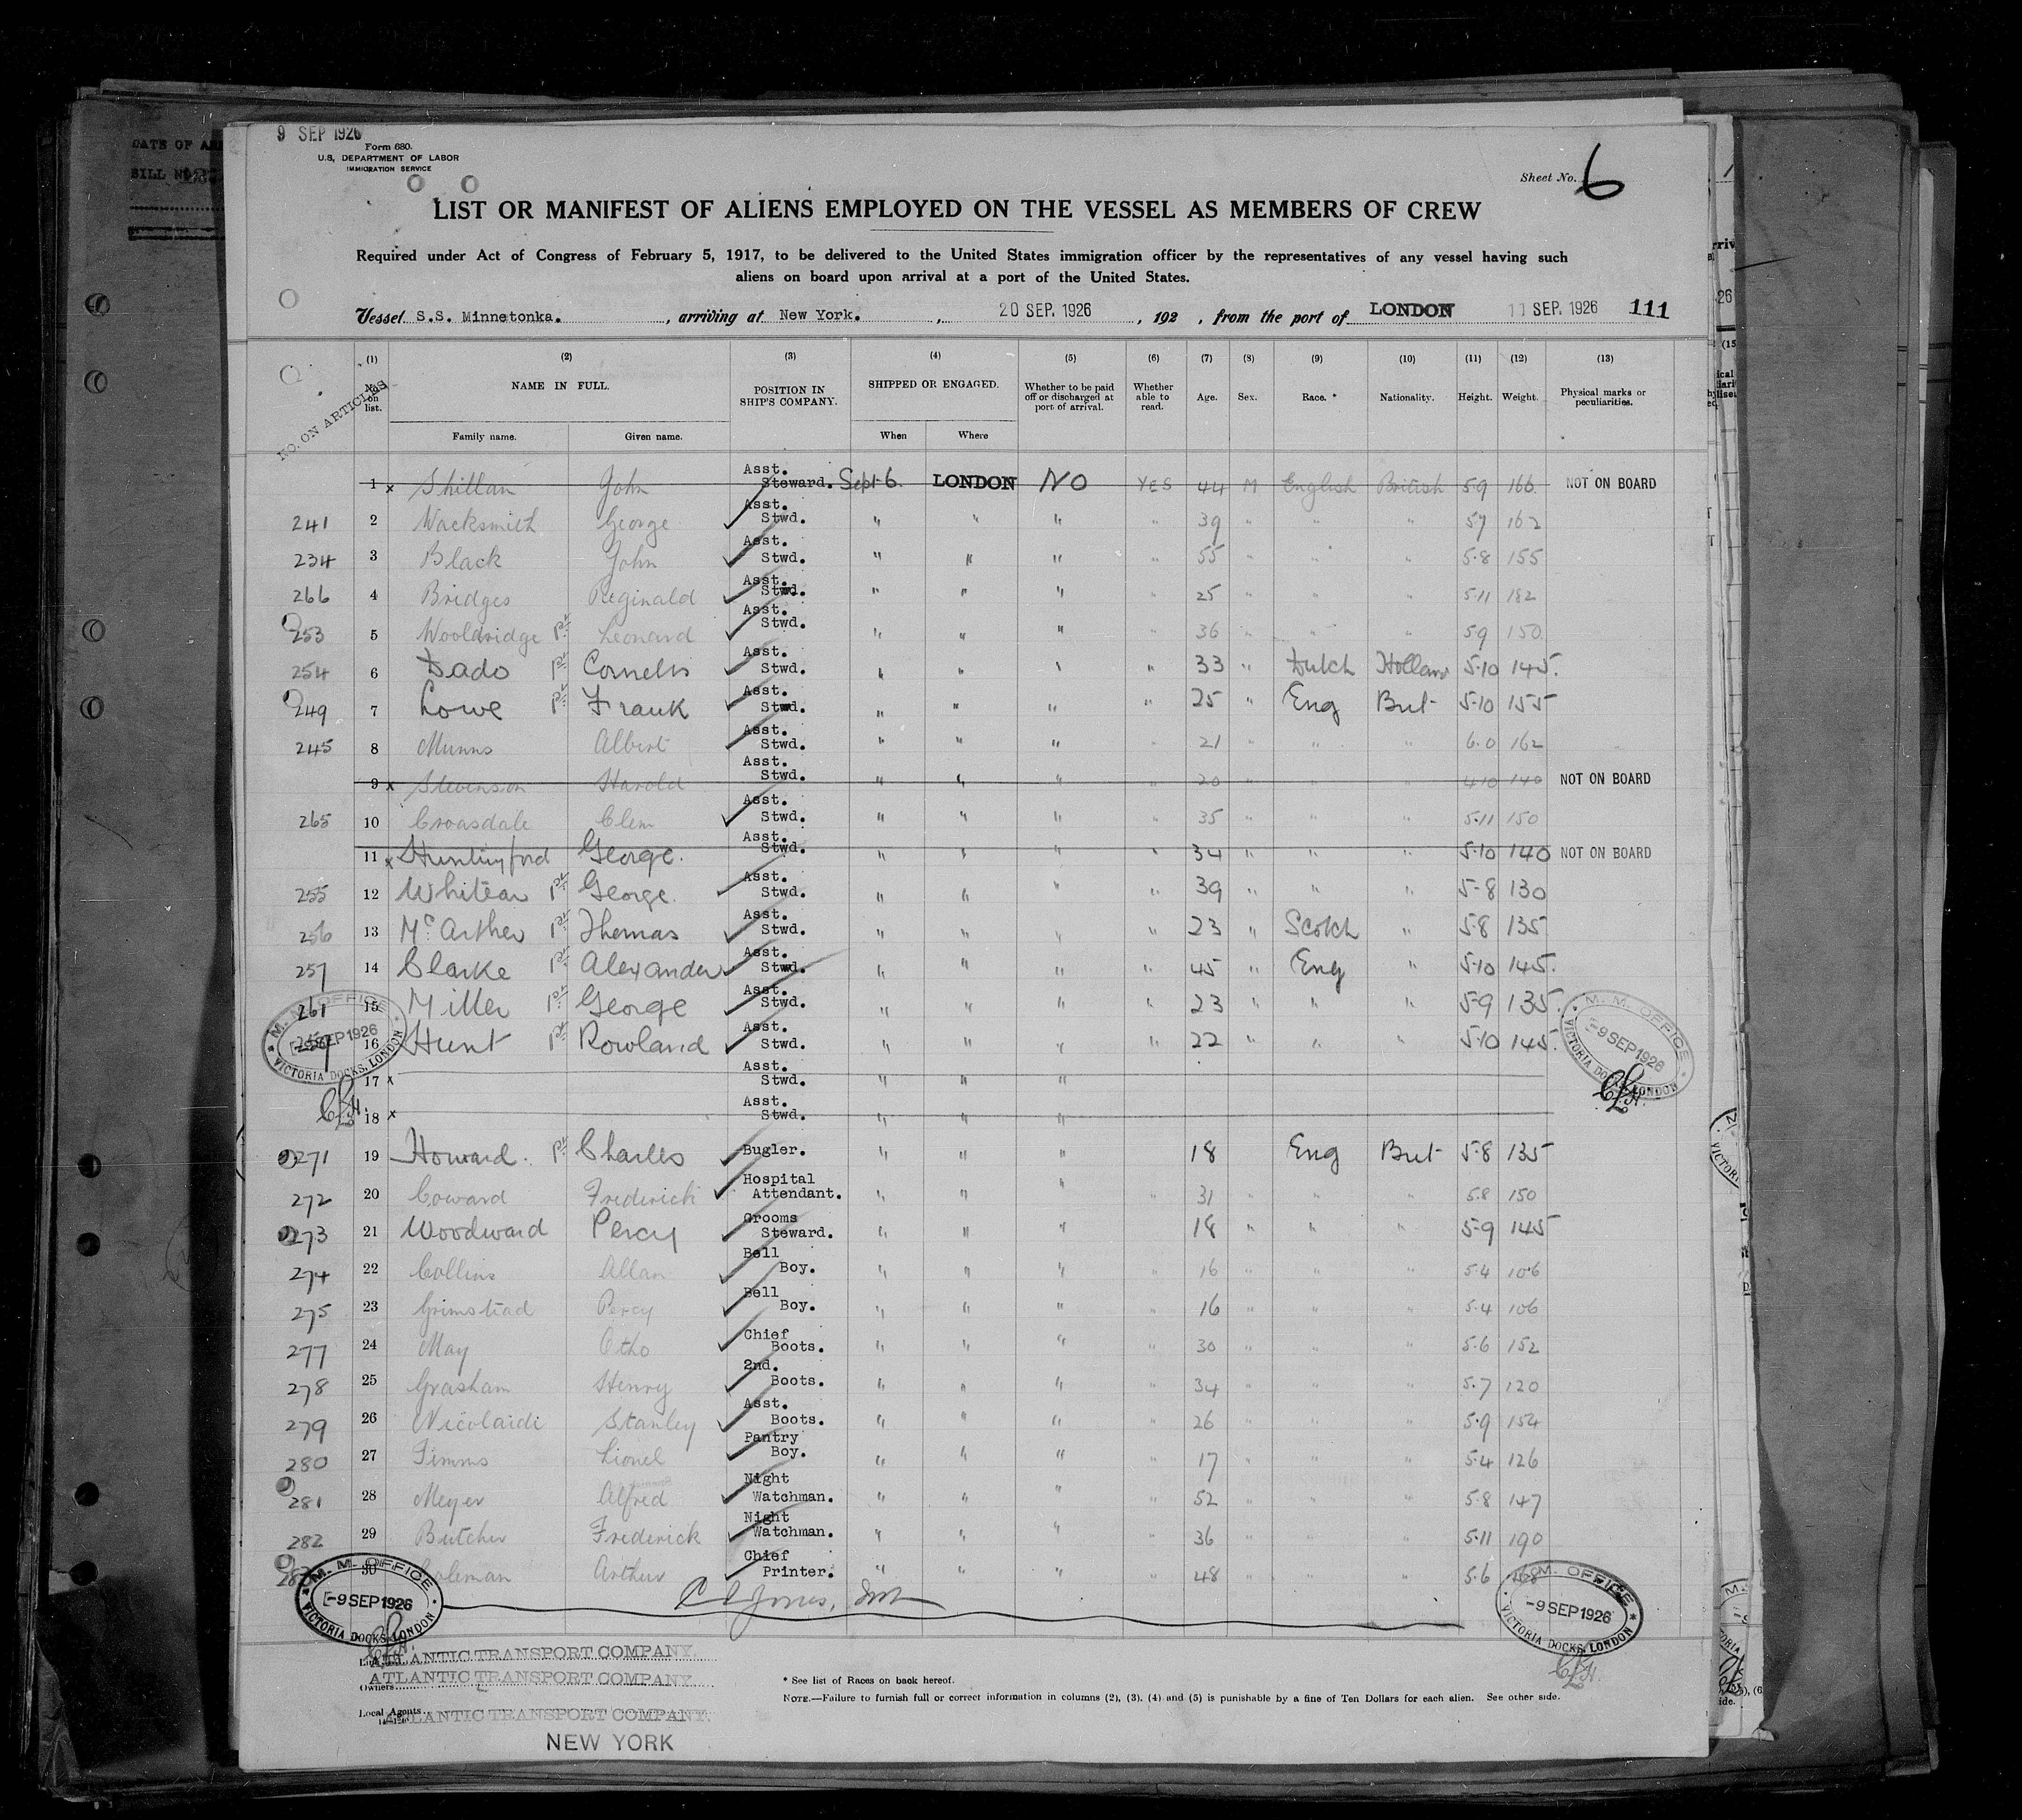 DATE OF AR
BILL NO
9 SEP 1926
Form 680.
U.S. DEPARTMENT OF LABOR
IMMIGRATION SERVICE
Sheet No. 6
LIST OR MANIFEST OF ALIENS EMPLOYED ON THE VESSEL AS MEMBERS OF CREW
Required under Act of Congress of February 5, 1917, to be delivered to the United States immigration officer by the representatives of any vessel having such
aliens on board upon arrival at a port of the United States.
Vessel S.S. Minnetonka. , arriving at New York. , 20 SEP. 1926 , 192 , from the port of LONDON 11 SEP. 1926 111
(1) (2) (3) (4) (5) (6) (7) (8) (9) (10) (11) (12) (13)
NO. ON ARTICLES
No. on list.
NAME IN FULL.
Family name. Given name.
POSITION IN SHIP'S COMPANY.
SHIPPED OR ENGAGED.
When Where
Whether to be paid off or discharged at port of arrival.
Whether able to read.
Age. Sex. Race. * Nationality. Height. Weight.
Physical marks or peculiarities.
1 x Shillan John Asst. Steward. Sept 6. LONDON NO YES 44 M English British 5.9 166 NOT ON BOARD
241 2 Wacksmith George Asst. Stwd. " " " " 39 " " " 5.7 162
234 3 Black John Asst. Stwd. " " " " 55 " " " 5.8 155
266 4 Bridges Reginald Asst. Stwd. " " " " 25 " " " 5.11 182
253 5 Wooldridge Leonard Asst. Stwd. " " " " 36 " " " 5.9 150
254 6 Dado Cornelis Asst. Stwd. " " " " 33 " Dutch Holland 5.10 145.
249 7 Lowe Frank Asst. Stwd. " " " " 25 " Eng Brit 5.10 155
245 8 Munns Albert Asst. Stwd. " " " " 21 " " " 6.0 162
9 x Stevenson Harold Asst. Stwd. " " " " 20 " " " 4.10 140 NOT ON BOARD
265 10 Croasdale Clem Asst. Stwd. " " " " 35 " " " 5.11 150
11 x Huntingford George. Asst. Stwd. " " " " 34 " " " 5.10 140 NOT ON BOARD
255 12 Whitear George. Asst. Stwd. " " " " 39 " " " 5-8 130
256 13 McArther Thomas Asst. Stwd. " " " " 23 " Scotch " 5.8 135
257 14 Clarke Alexander Asst. Stwd. " " " " 45 " Eng " 5.10 145.
261 15 Miller George Asst. Stwd. " " " " 23 " " " 5-9 135.
16 Hunt Rowland Asst. Stwd. " " " " 22 " " " 5.10 145.
17 x Asst. Stwd. " " "
18 x Asst. Stwd. " " "
271 19 Howard. Charles Bugler. " " " 18 Eng Brit 5.8 135
272 20 Coward Frederick Hospital Attendant. " " " " 31 " " " 5.8 150
273 21 Woodward Percy Grooms Steward. " " " " 18 " " " 5-9 145
274 22 Collins Allan Bell Boy. " " " " 16 " " " 5.4 106
275 23 Grimstead Percy Bell Boy. " " " " 16 " " " 5.4 106
277 24 May Otho Chief Boots. " " " " 30 " " " 5.6 152
278 25 Grasham Henry 2nd. Boots. " " " " 34 " " " 5.7 120
279 26 Nicolaidi Stanley Asst. Boots. " " " " 26 " " " 5.9 154
280 27 Timms Lionel Pantry Boy. " " " " 17 " " " 5.4 126
281 28 Meyer Alfred Night Watchman. " " " " 52 " " " 5.8 147
282 29 Butcher Frederick Night Watchman. " " " " 36 " " " 5.11 190
30 Coleman Arthur Chief Printer. " " " " 48 " " " 5.6 168
M. M. OFFICE
-9 SEP 1926
VICTORIA DOCKS, LONDON
M. M. OFFICE
-9 SEP 1926
VICTORIA DOCKS, LONDON
M. M. OFFICE
-9 SEP 1926
VICTORIA DOCKS, LONDON
M. M. OFFICE
-9 SEP 1926
VICTORIA DOCKS, LONDON
ATLANTIC TRANSPORT COMPANY.
Owners ATLANTIC TRANSPORT COMPANY
Local Agents ATLANTIC TRANSPORT COMPANY.
NEW YORK
* See list of Races on back hereof.
NOTE.—Failure to furnish full or correct information in columns (2), (3), (4) and (5) is punishable by a fine of Ten Dollars for each alien. See other side.